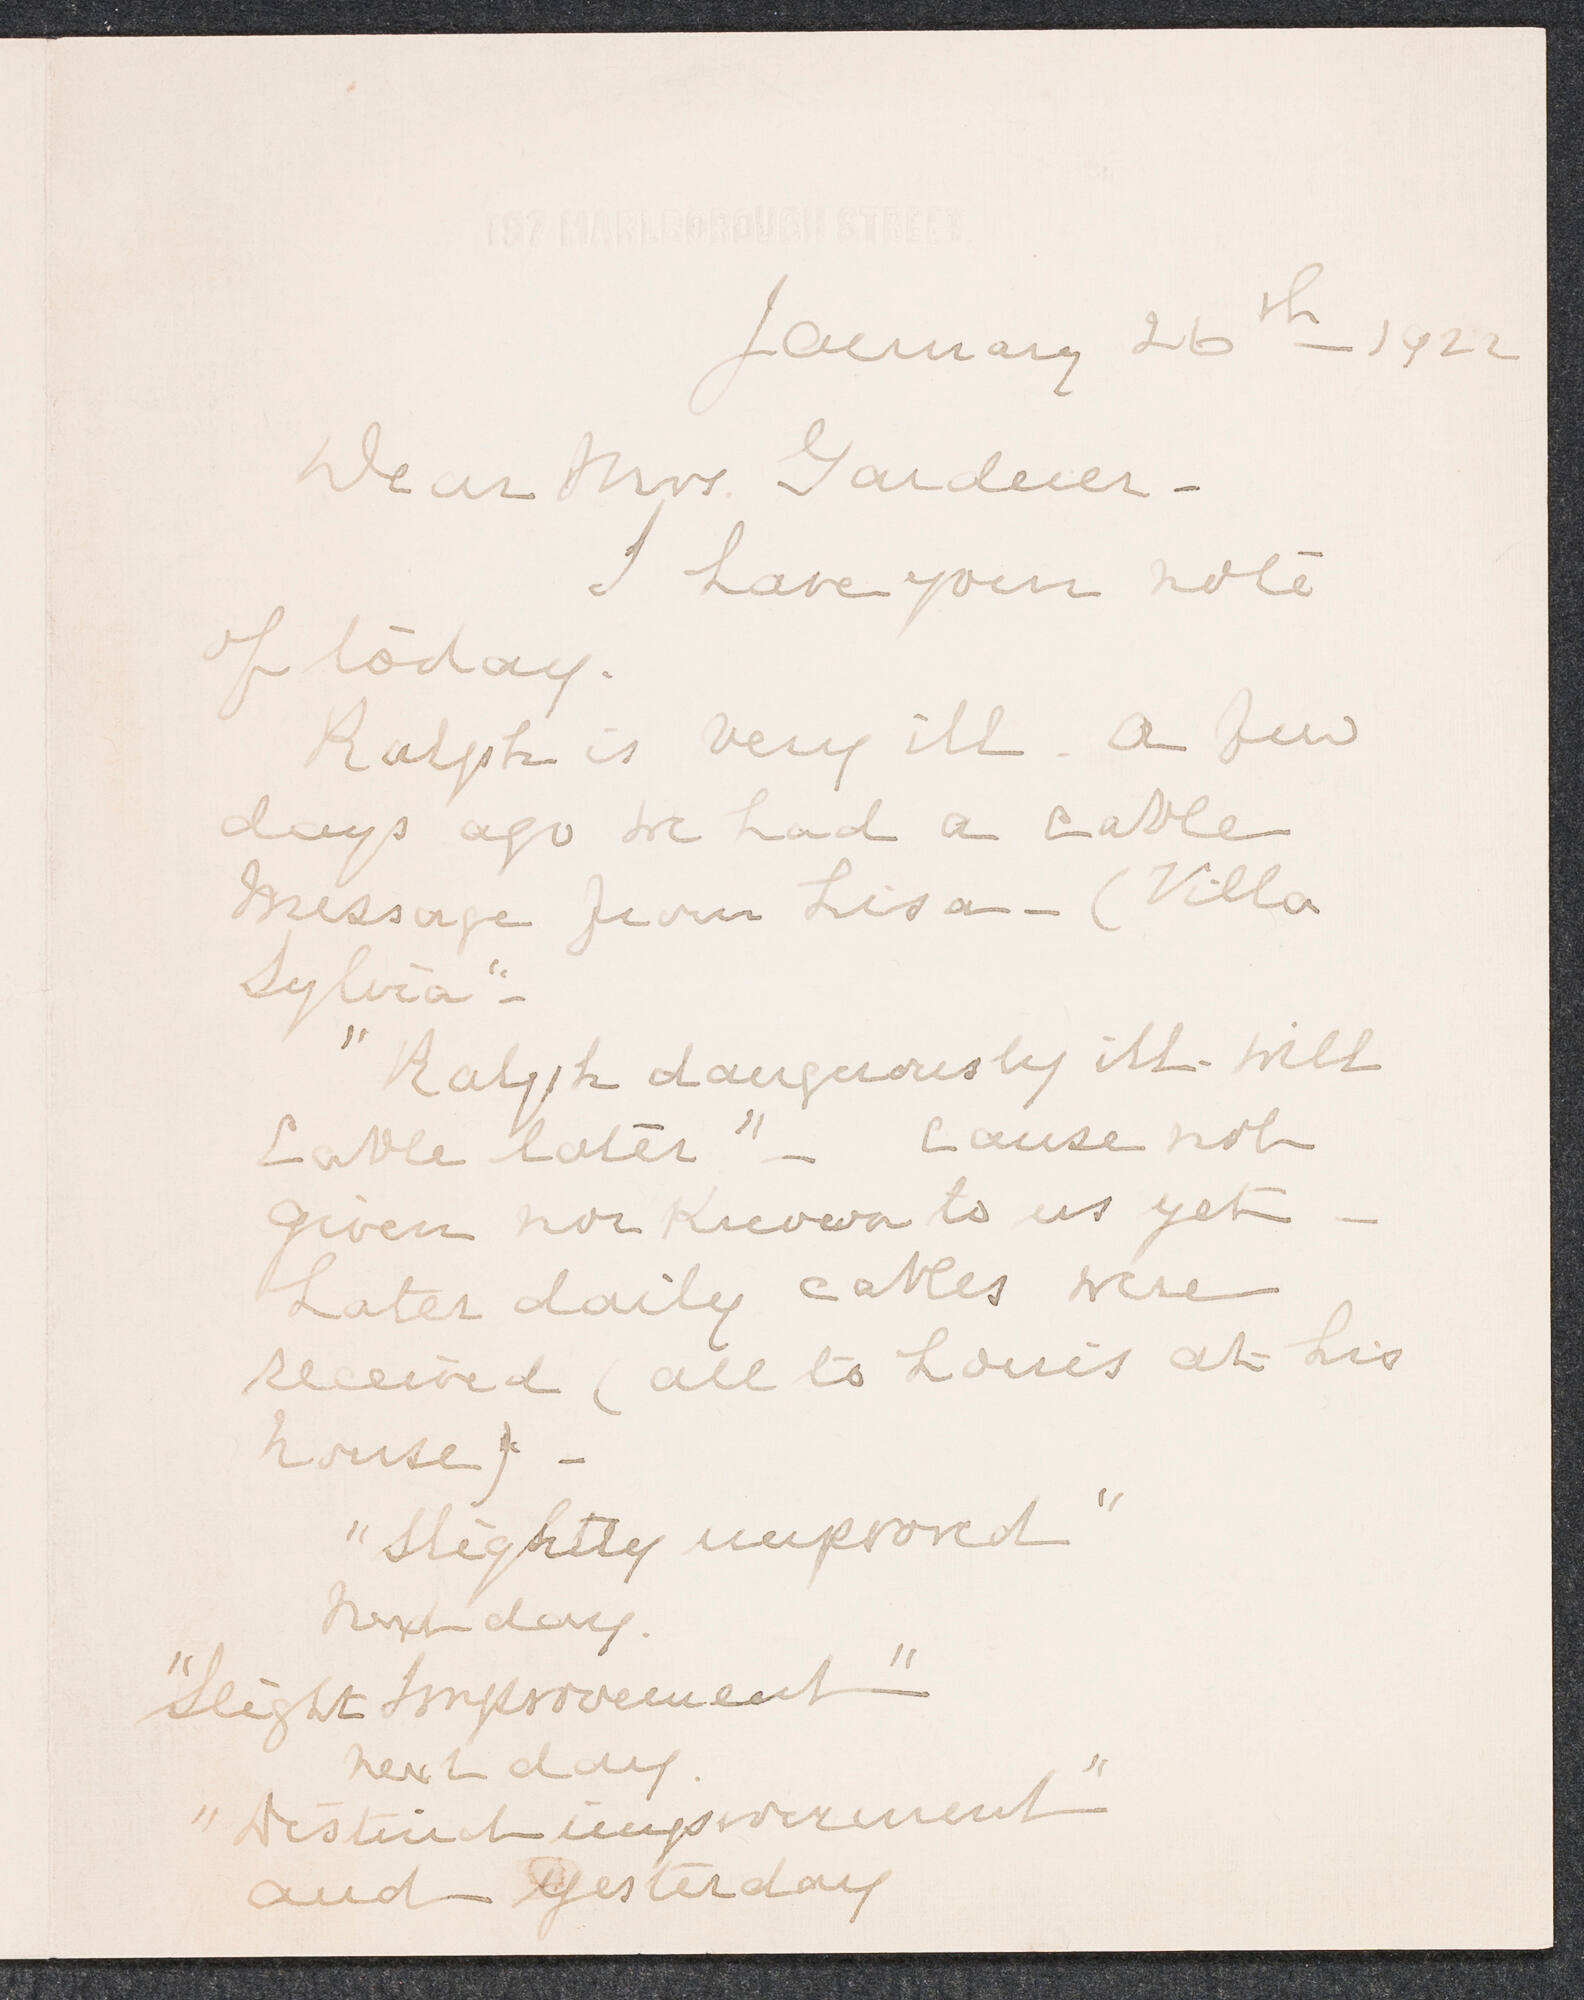 197 MARLBOROUGH STREET
January 26th 1922
Dear Mrs. Gardener -
I have your note
of today.
Ralph is very ill. a few
days ago we had a cable
message from Lisa - (Villa
Sylvia" -
"Ralph dangerously ill - will
cable later" - cause not
given nor known to us yet -
Later daily cables were
received (all to Louis at his
house) -
"Slightly improved"
next day.
"Slight Improvement"
next day.
"Distinct improvement"
and yesterday